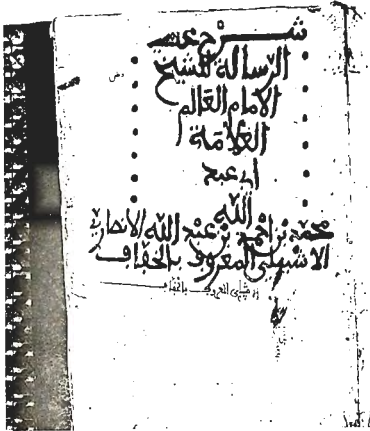 شرح عقيدة
الرسالة للشيخ
الامام العالم
العلامة
ابي عبد
الله
محمد بن احمد بن عبد الله الانصاري
الاشبيلي المعروف بالخفاف
المعروف بالخفاف